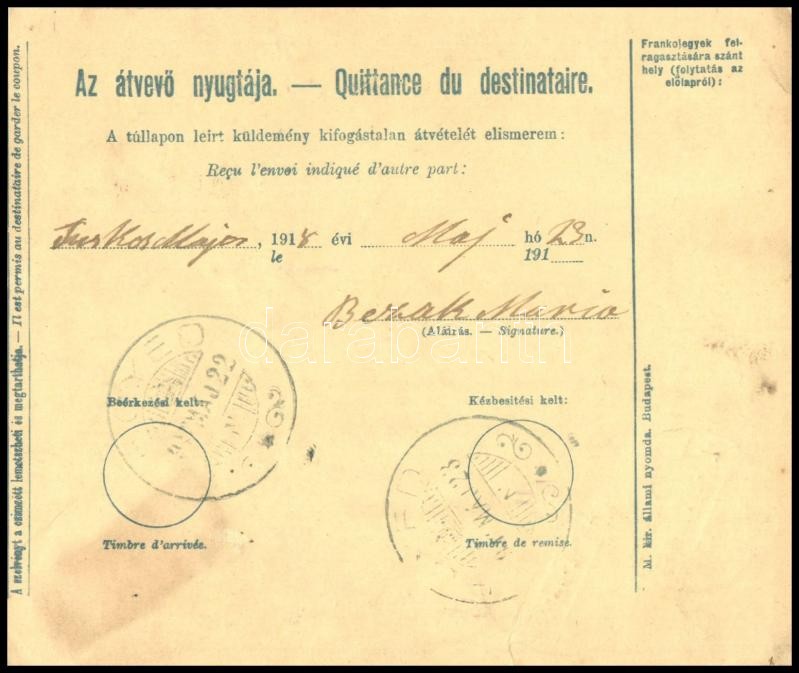 Az átvevő nyugtája. — Quittance du destinataire.
A túllapon leirt küldemény kifogástalan átvételét elismerem:
Reçu l'envoi indiqué d'autre part:
, 1918 évi Maj hó 23n.
le 191
Bezak Maria
(Aláirás. — Signature.)
Beérkezési kelt:
MAJ 22
Timbre d'arrivée.
Kézbesitési kelt:
MAJ 23
Timbre de remise.
Frankojegyek fel-
ragasztására szánt
hely (folytatás az
előlapról):
M. kir. állami nyomda. Budapest.
A szelvényt a czimzett lemetszheti és megtarthatja. — Il est permis au destinataire de garder le coupon.
darabanth